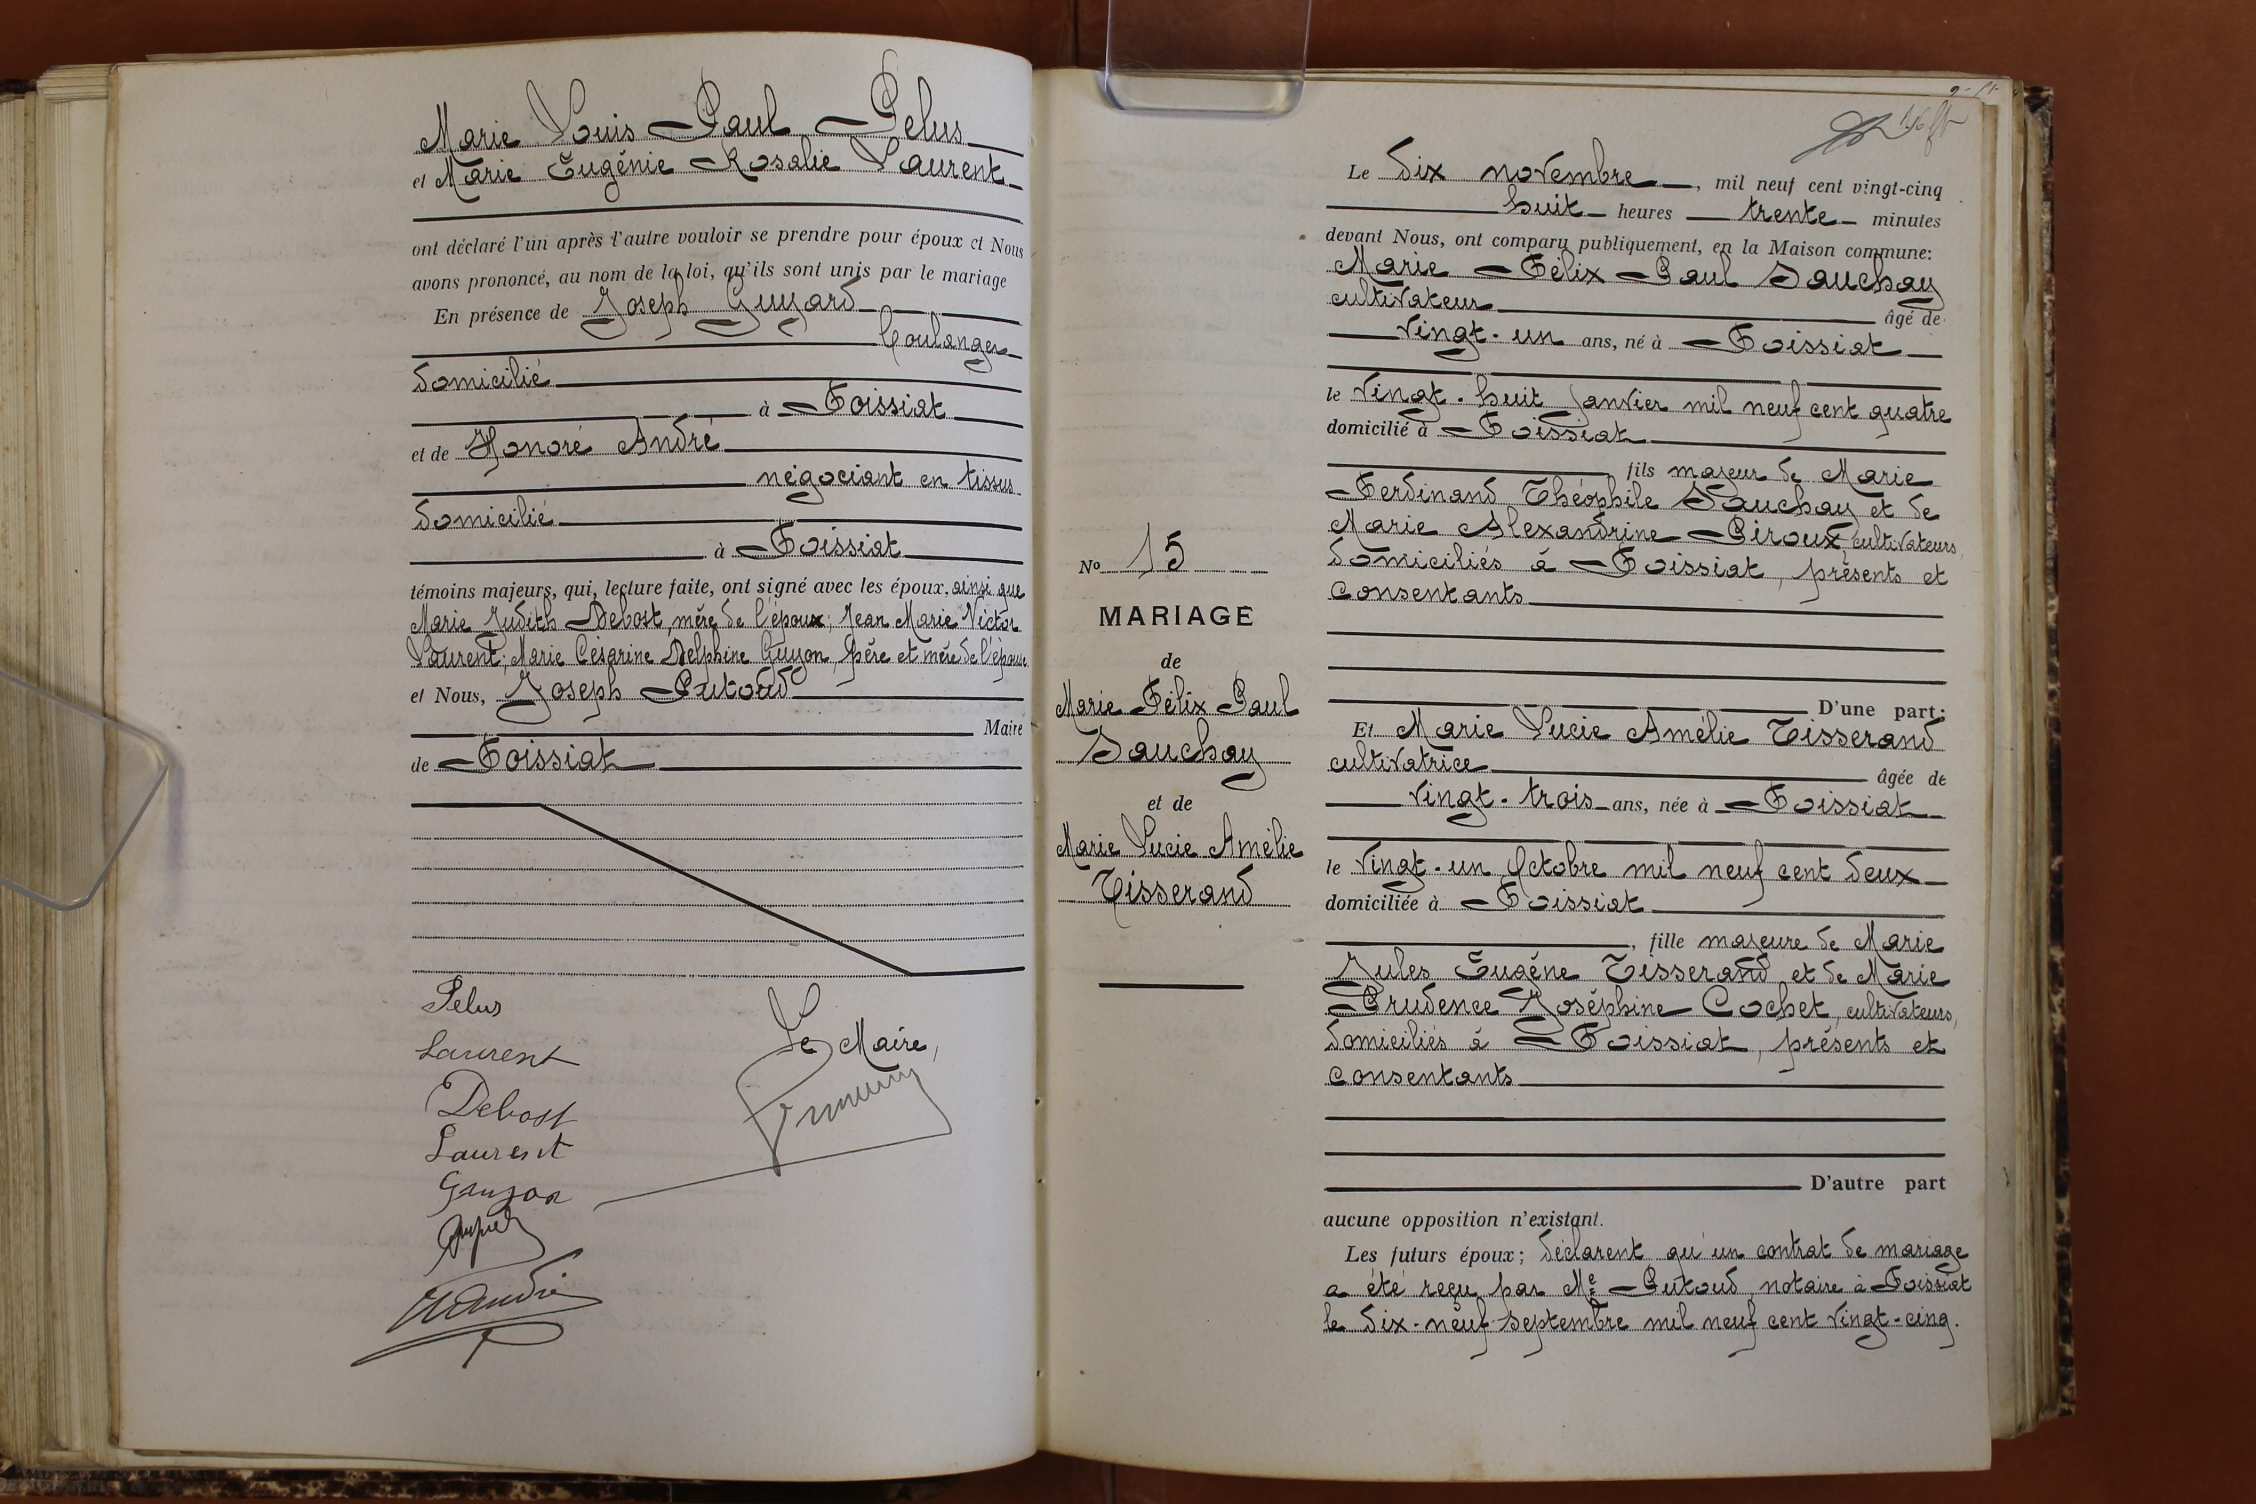 Marie Louis Paul Pelus
et Marie Eugénie Rosalie Laurent
ont déclaré l'un après l'autre vouloir se prendre pour époux et Nous
avons prononcé, au nom de la loi, qu'ils sont unis par le mariage
En présence de Joseph Guyard
boulanger
domicilié
à Foissiat
et de Honoré André
négociant en tissus
domicilié
à Foissiat
témoins majeurs, qui, lecture faite, ont signé avec les époux, ainsi que
Marie Judith Debost, mère de l'époux; Jean Marie Victor
Laurent; Marie Césarine Delphine Guyon, père et mère de l'épouse
et Nous, Joseph Putoud
Maire
de Foissiat
Pelus
Laurent
Debost
Laurent
Le Maire,
N° 15
MARIAGE
de
Marie Félix Paul
Sauchay
et de
Marie Lucie Amélie
Tisserand
Le dix novembre, mil neuf cent vingt-cinq
huit heures trente minutes
devant Nous, ont comparu publiquement, en la Maison commune:
Marie Félix Paul Sauchay
cultivateur âgé de
vingt-un ans, né à Foissiat
le vingt-huit janvier mil neuf cent quatre
domicilié à Foissiat
fils majeur de Marie
Ferdinand Théophile Sauchay et de
Marie Alexandrine Piroux, cultivateurs,
domiciliés à Foissiat, présents et
consentants
D'une part;
Et Marie Lucie Amélie Tisserand
cultivatrice âgée de
vingt-trois ans, née à Foissiat
le vingt-un Octobre mil neuf cent deux
domiciliée à Foissiat
, fille majeure de Marie
Jules Eugéne Tisserand et de Marie
Prudence Joséphine Cochet, cultivateurs,
domiciliés à Foissiat, présents et
consentants
D'autre part
aucune opposition n'existant.
Les futurs époux; déclarent qu'un contrat de mariage
a été reçu par Me Putoud, notaire à Foissiat
le dix-neuf septembre mil neuf cent vingt-cinq.